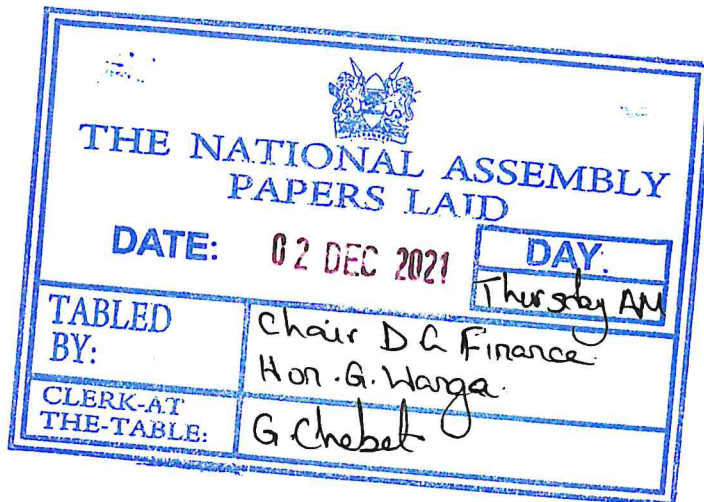 THE NATIONAL ASSEMBLY
PAPERS LAID
DATE: 02 DEC 2021
DAY:
Thursday AM
TABLED
BY:
Chair D C Finance
Hon. G. Wanga.
CLERK-AT
THE-TABLE:
G. Chebet